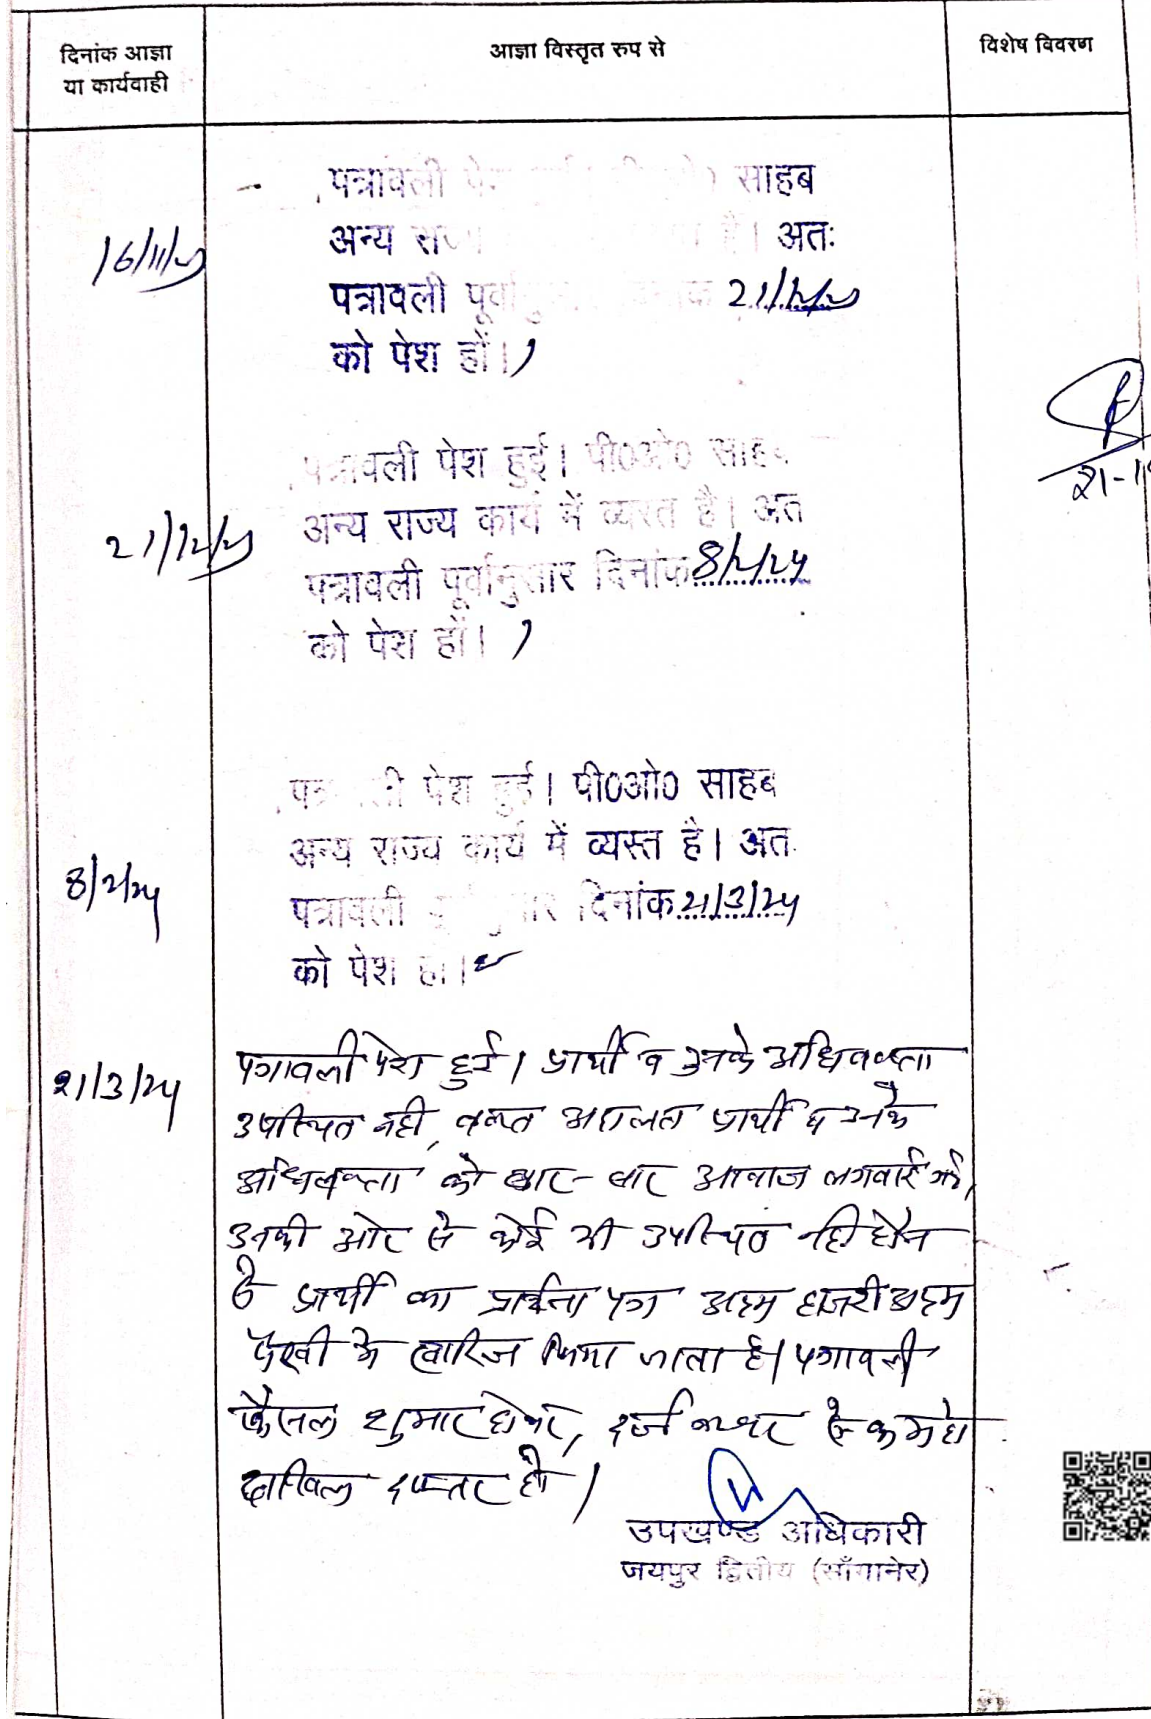 दिनांक आज्ञा
या कार्यवाही
आज्ञा विस्तृत रुप से
विशेष विवरण
पत्रावली साहब
अन्य है। अतः
16/11/23
पत्रावली 21/12/23
को पेश हों।
पत्रावली पेश हुई। पी0ओ0 साहब
21/12/23
अन्य राज्य कार्य में व्यस्त है। अत
पत्रावली पूर्वानुसार दिनांक 8/2/24
को पेश हों।
पेश हुई। पी0ओ0 साहब
अन्य राज्य कार्य में व्यस्त है। अत
8/2/24
पत्रावली दिनांक 21/3/24
को पेश हों।
21/3/24
पत्रावली पेश हुई। प्रार्थी व उनके अधिवक्ता
उपस्थित नही, वक्त अदालत प्रार्थी व उनके
अधिवक्ता को बार-बार आवाज लगवाई गई,
उनकी ओर से कोई भी उपस्थित नही होने
से प्रार्थी का प्रार्थना पत्र अदम हाजरी अदम
पैरवी मे खारिज किया जाता है। पत्रावली
फैसल शुमार होकर, दर्ज नम्बर से कम हो
दाखिल दफ्तर हो।
उपखण्ड अधिकारी
जयपुर द्वितीय (साँगानेर)